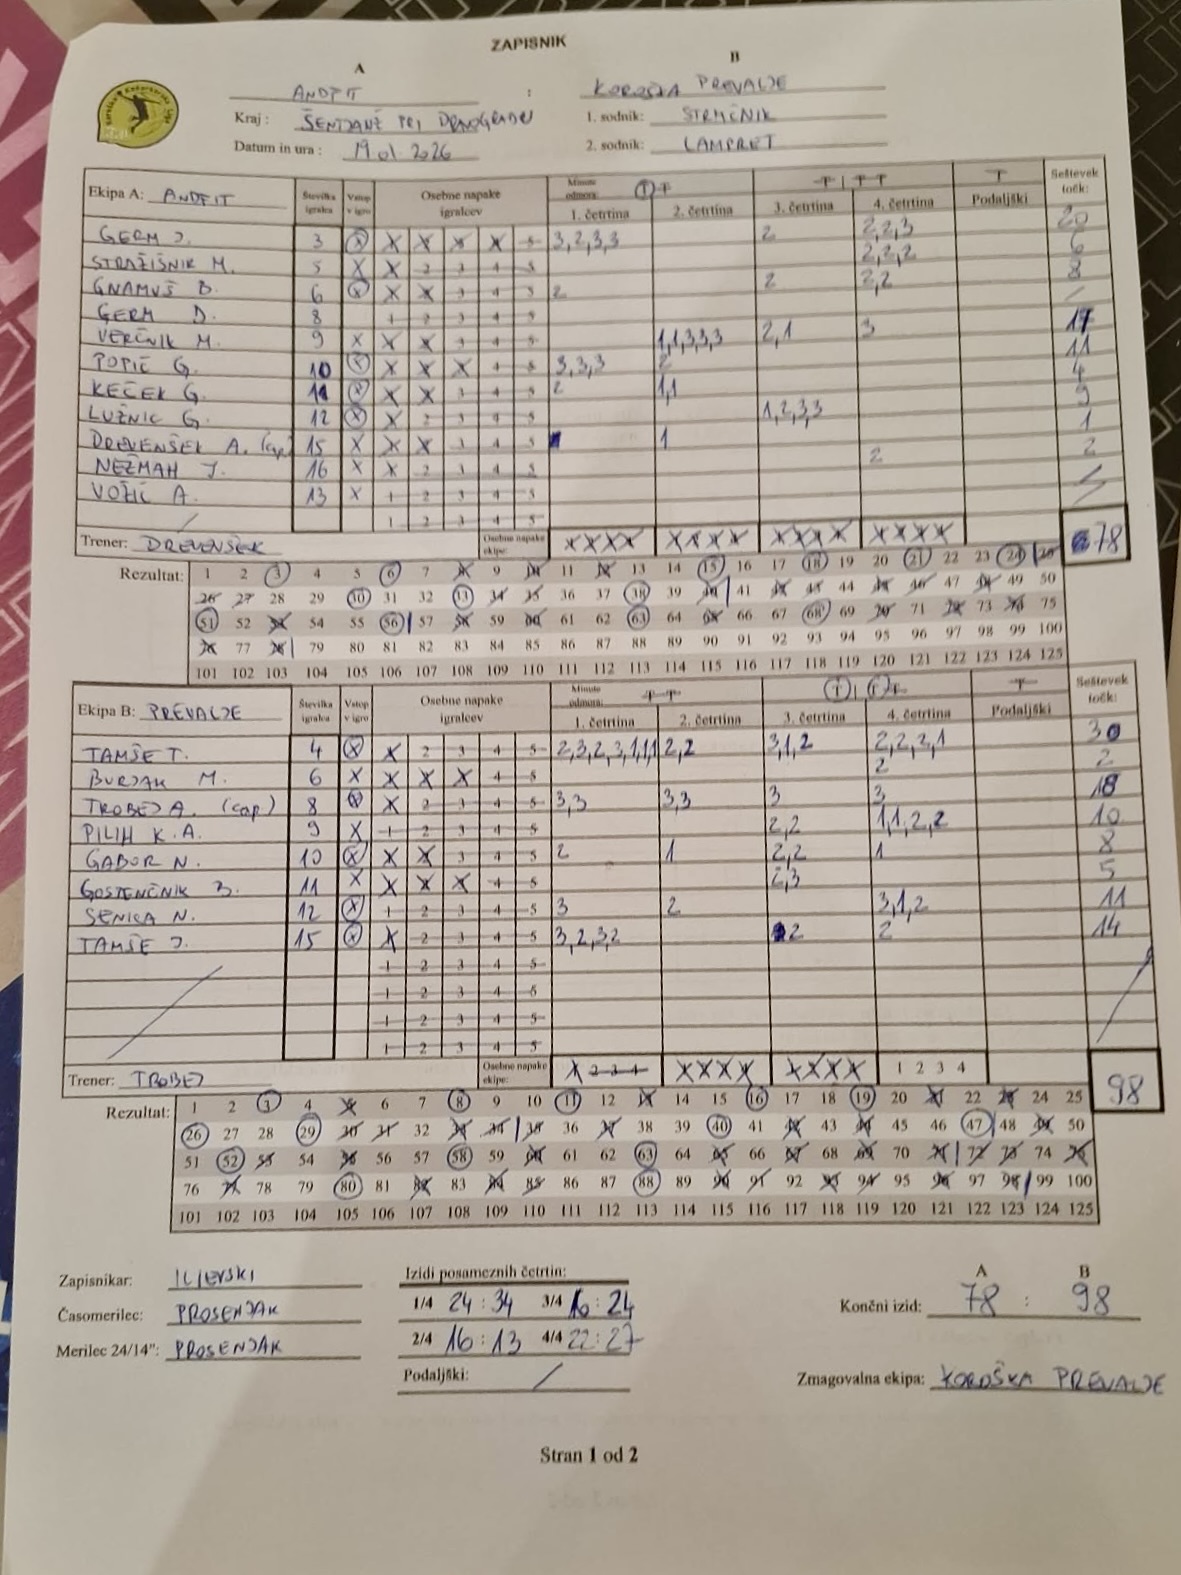 ZAPISNIK
A B
ANDFIT : KOROŠKA PREVALJE
Kraj : ŠENTJANŽ PRI DRAVOGRADU 1. sodnik: STRMČNIK
Datum in ura : 19 01. 2026 2. sodnik: LAMPRET
Ekipa A: ANDFIT Številka igralca Vstop v igro Osebne napake igralcev Minute odmora: 1. četrtina 2. četrtina 3. četrtina 4. četrtina Podaljški Seštevek točk:
GERM J. 3 X X X X X 5 3,2,3,3 2 2,2,3 20
STRAŽIŠNIK M. 5 X X 2 3 4 5 2,2,2 6
GNAMUŠ B. 6 X X X 3 4 5 2 2 2,2 8
GERM D. 8 1 2 3 4 5 /
VERČNIK M. 9 X X X 3 4 5 1,1,3,3,3 2,1 3 17
POPIČ G. 10 X X X X 4 5 3,3,3 2 11
KEČEK G. 11 X X X 3 4 5 2 1,1 4
LUŽNIC G. 12 X X 2 3 4 5 1,2,3,3 9
DREVENŠEK A. (cap) 15 X X X 3 4 5 1 1
NEŽMAH J. 16 X X 2 3 4 5 2 2
VOŽIČ A. 13 X 1 2 3 4 5
/ 1 2 3 4 5
Trener: DREVENŠEK Osebne napake ekipe: XXXX XXXX XXXX XXXX 78
Rezultat: 1 2 3 4 5 6 7 8 9 10 11 12 13 14 15 16 17 18 19 20 21 22 23 24 25
26 27 28 29 30 31 32 33 34 35 36 37 38 39 40 41 42 43 44 45 46 47 48 49 50
51 52 53 54 55 56 57 58 59 60 61 62 63 64 65 66 67 68 69 70 71 72 73 74 75
76 77 78 79 80 81 82 83 84 85 86 87 88 89 90 91 92 93 94 95 96 97 98 99 100
101 102 103 104 105 106 107 108 109 110 111 112 113 114 115 116 117 118 119 120 121 122 123 124 125
Ekipa B: PREVALJE Številka igralca Vstop v igro Osebne napake igralcev Minute odmora: 1. četrtina 2. četrtina 3. četrtina 4. četrtina Podaljški Seštevek točk:
TAMŠE T. 4 X X 2 3 4 5 2,3,2,3,1,1,1 2,2 3,1,2 2,2,2,1 30
BURJAK M. 6 X X X X 4 5 2 2
TROBEJ A. (cap) 8 X X 2 3 4 5 3,3 3,3 3 3 18
PILIH K.A. 9 X 1 2 3 4 5 2,2 1,1,2,2 10
GABOR N. 10 X X X 3 4 5 2 1 2,2 1 8
GOSTENČNIK B. 11 X X X X 4 5 2,3 5
SENICA N. 12 X 1 2 3 4 5 3 2 3,1,2 11
TAMŠE J. 15 X X 2 3 4 5 3,2,3,2 2 2 14
1 2 3 4 5
1 2 3 4 5
1 2 3 4 5
1 2 3 4 5
Trener: TROBEJ Osebne napake ekipe: X 2 3 4 XXXX XXXX 1 2 3 4 98
Rezultat: 1 2 3 4 5 6 7 8 9 10 11 12 13 14 15 16 17 18 19 20 21 22 23 24 25
26 27 28 29 30 31 32 33 34 35 36 37 38 39 40 41 42 43 44 45 46 47 48 49 50
51 52 53 54 55 56 57 58 59 60 61 62 63 64 65 66 67 68 69 70 71 72 73 74 75
76 77 78 79 80 81 82 83 84 85 86 87 88 89 90 91 92 93 94 95 96 97 98 99 100
101 102 103 104 105 106 107 108 109 110 111 112 113 114 115 116 117 118 119 120 121 122 123 124 125
Zapisnikar: ILJEVSKI Izidi posameznih četrtin: A B
Časomerilec: PROSENJAK 1/4 24 : 34 3/4 16 : 24 Končni izid: 78 : 98
Merilec 24/14": PROSENJAK 2/4 16 : 13 4/4 22 : 27
Podaljški: / Zmagovalna ekipa: KOROŠKA PREVALJE
Stran 1 od 2